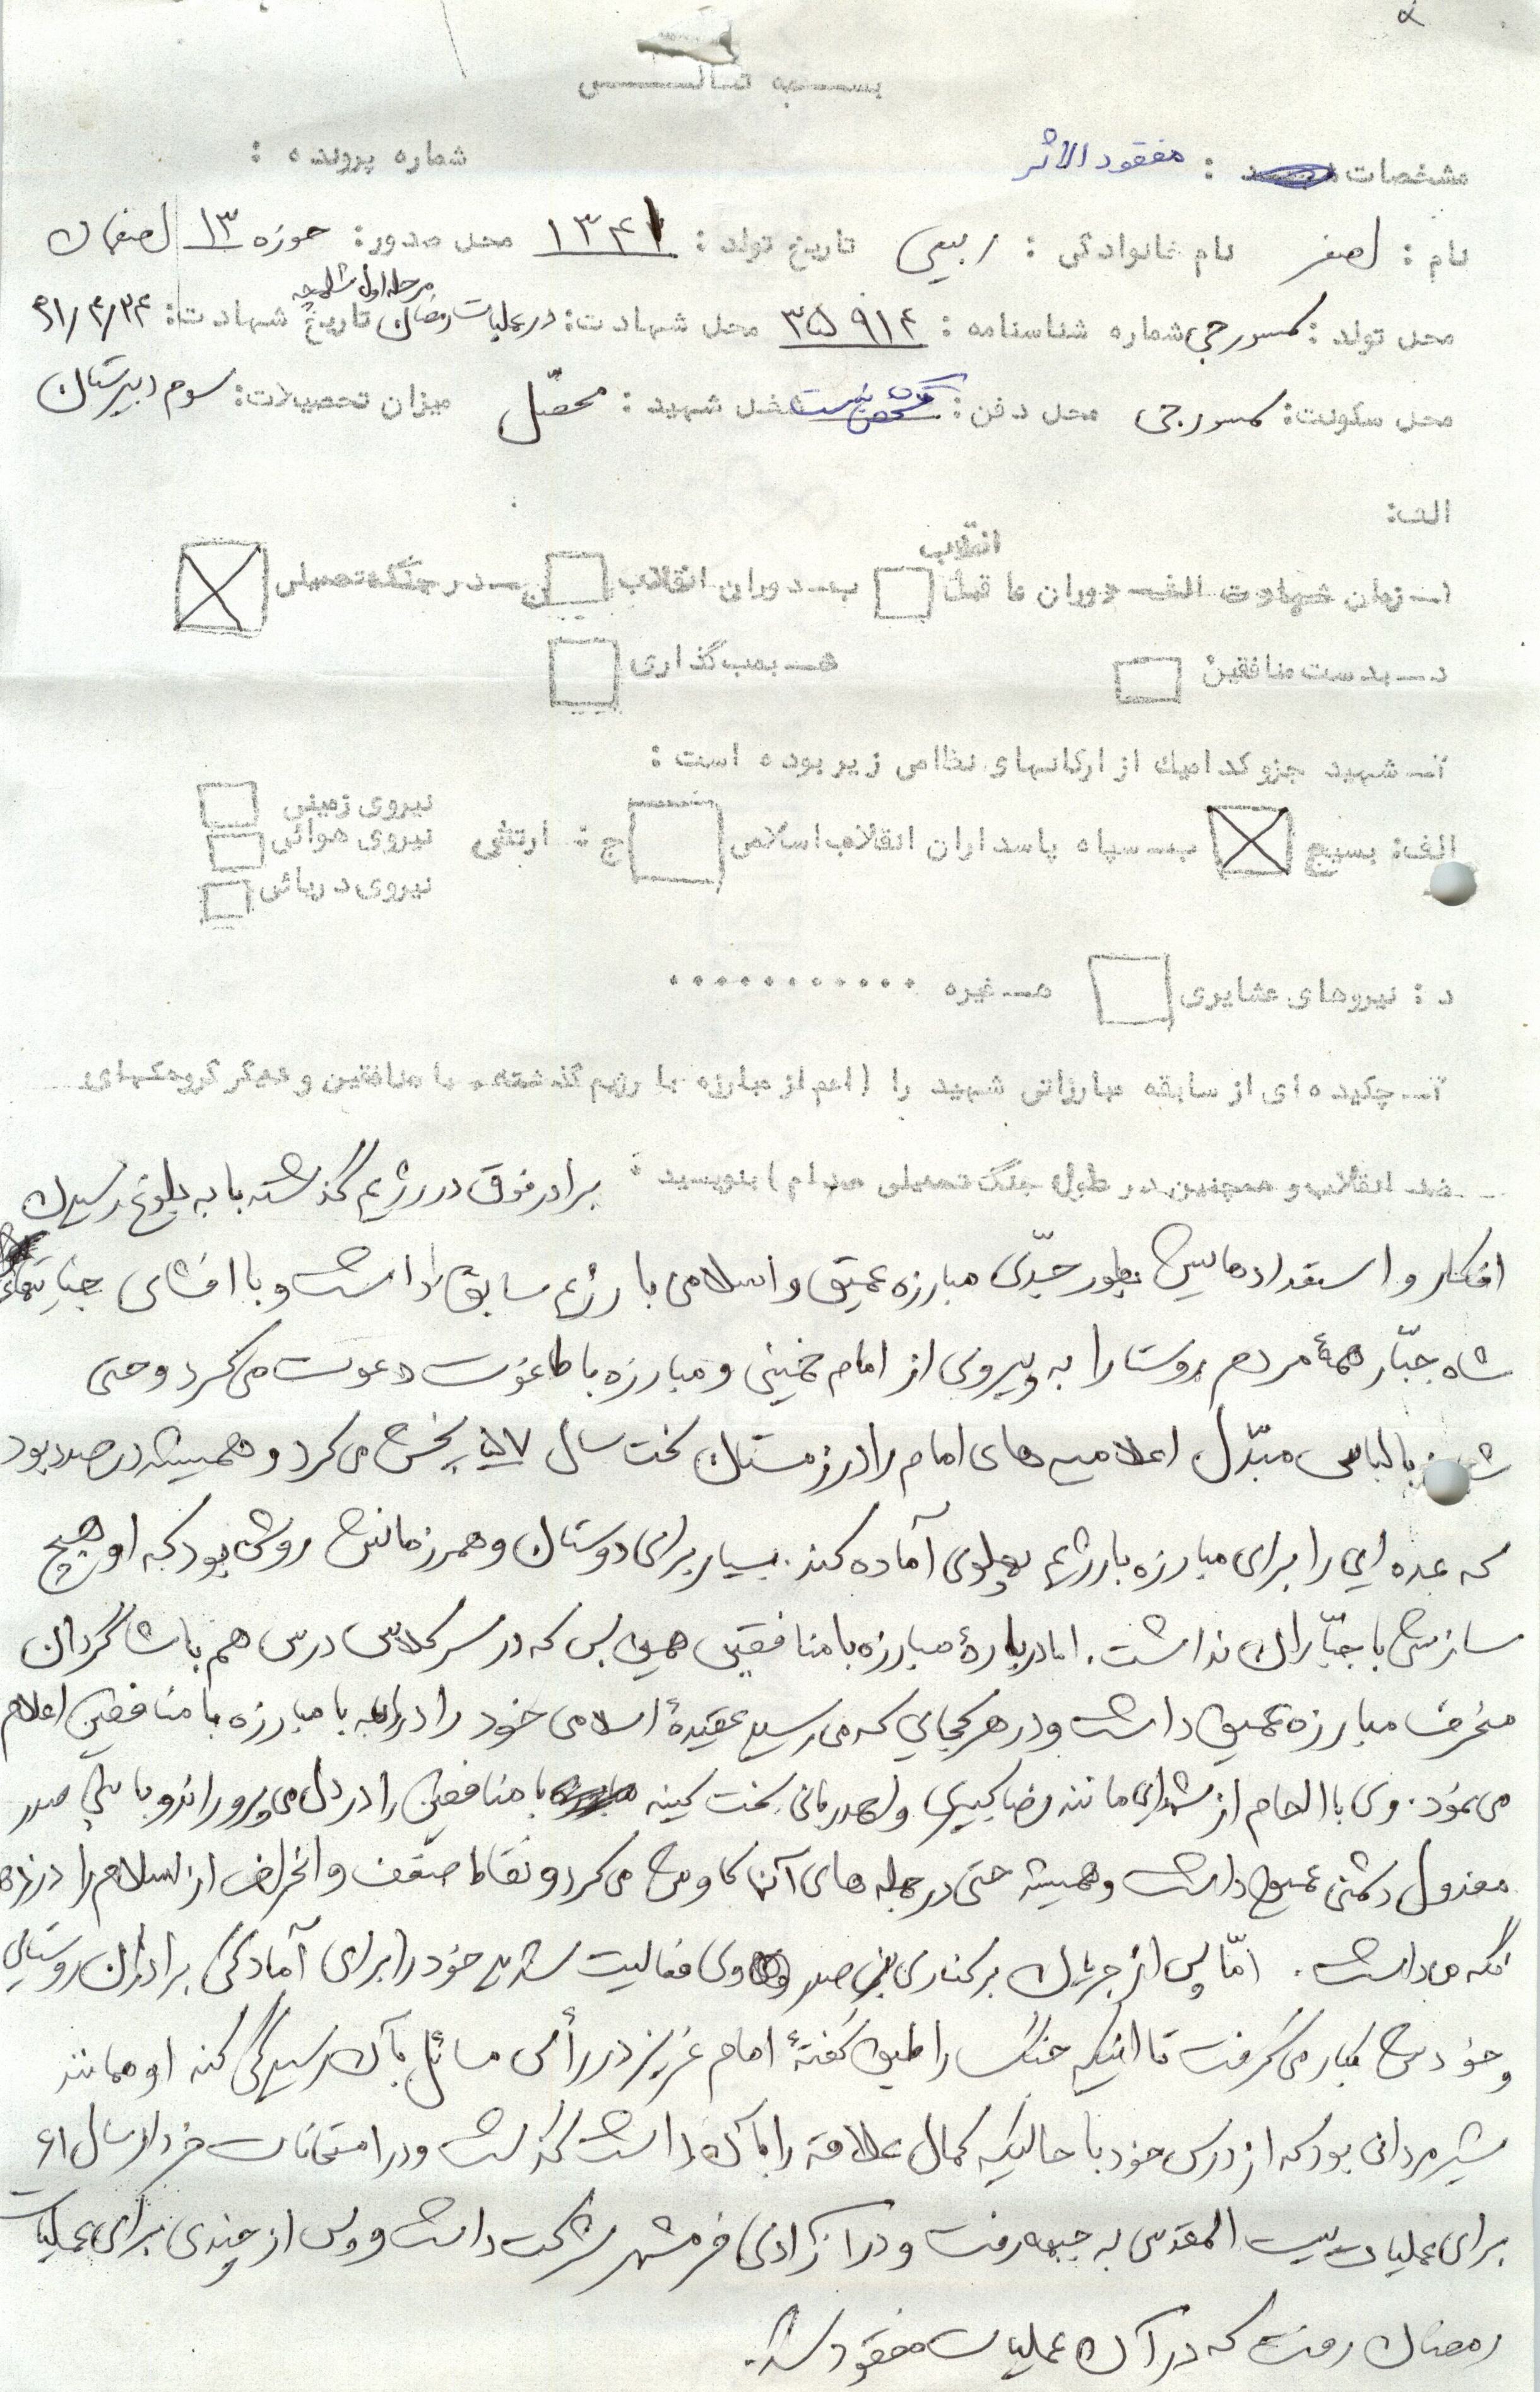 بسمه تعالی
مشخصات : مفقود الاثر شماره پرونده :
نام : اصغر نام خانوادگی : ربیعی تاریخ تولد : ۱۳۴۱ محل صدور: حوزه ۱۳ اصفهان
مرحله اول شلمچه
محل تولد : کمسورجی شماره شناسنامه : ۳۵۹۱۴ محل شهادت: در عملیات رمضان تاریخ شهادت: ۶۱/۴/۲۴
محل سکونت: کمسورجی محل دفن: مشخص نیست شغل شهید : محصّل میزان تحصیلات: سوم دبیرستان
الف:
انقلاب
۱ـ زمان شهادت الف ـ دوران ما قبل ب ـ دوران انقلاب ـ در جنگ تحمیلی
د ـ بدست منافقین هـ ـ بمب گذاری
۲ـ شهید جزو کدامیک از ارگانهای نظامی زیر بوده است :
نیروی زمینی
الف: بسیج ب ـ سپاه پاسداران انقلاب اسلامی ج : ارتشی نیروی هوائی
نیروی دریائی
د : نیروهای عشایری هـ ـ غیره ............
۳ـ چکیده ای از سابقه مبارزاتی شهید را (اعم از مبارزه با رژیم گذشته ، با منافقین و دیگر گروهکهای
ضد انقلاب و همچنین در طول جنگ تحمیلی صدام ) بنویسید : برادر فوق در رژیم گذشته با به بلوغ رسیدن
افکار و استعدادهایش بطور جدّی مبارزه عمیق و اسلامی با رژیم سابق داشت و با افشای جنایتهای
شاه جبّار همهٔ مردم روستا را به پیروی از امام خمینی و مبارزه با طاغوت دعوت می کرد و حتی
با لباس مبدّل اعلامیه های امام را در زمستان سخت سال ۵۷ پخش می کرد و همیشه در صدد بود
که عده ای را برای مبارزه با رژیم پهلوی آماده کند . بسیار برای دوستان و همرزمانش روشن بود که او هیچ
سازش با جبّاران نداشت . اما دربارهٔ مبارزه با منافقین همین بس که در سر کلاس درس هم با شاگردان
منحرف مبارزه عمیق داشت و در هر کجایی که می رسید عقیدهٔ اسلامی خود را در رابطه با مبارزه با منافقین اعلام
می نمود . وی با الهام از شهدای مانند رضا کبیری و سخت کینه با منافقین را در دل می پروراند و با بنی صدر
معزول دشمنی عمیق داشت و همیشه حتی در جمله های آنها کاوش می کرد و نقاط ضعف و انحراف از اسلام را در نزد
نگه می داشت . امّا پس از جریان برکناری بنی صدر وی فعالیت شدید خود را برای آمادگی برادران روستایی
و خودش بکار می گرفت تا اینکه جنگ را طبق گفتهٔ امام عزیز در رأس مسائل بآن رسیدگی کند او همانند
شیرمردانی بود که از درس خود با حالیکه کمال علاقه را بآن داشت گذشت و در امتحانات خرداد سال ۶۱
برای عملیات بیت المقدس به جبهه رفت و در آزادی خرمشهر شرکت داشت و پس از چندی برای عملیات
رمضان رفت که در آن عملیات مفقود شد .